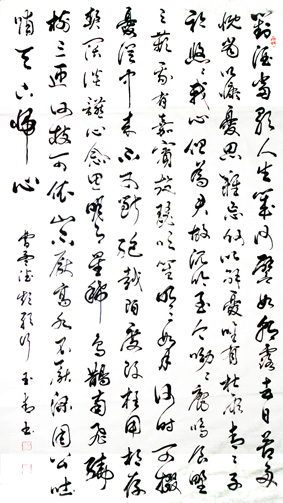 對酒當歌人生幾何譬如朝露去日苦多
慨當以慷憂思難忘何以解憂唯有杜康青々子
衿悠々我心但為君故沉吟至今呦々鹿鳴食野
之蘋我有嘉賓鼓瑟吹笙明々如月何時可掇
憂從中來不可斷絕越陌度阡枉用相存
契闊談讌心念舊恩月明星稀烏鵲南飛繞
樹三匝何枝可依山不厭高水不厭深周公吐
哺天下歸心
曹孟德短歌行 玉書